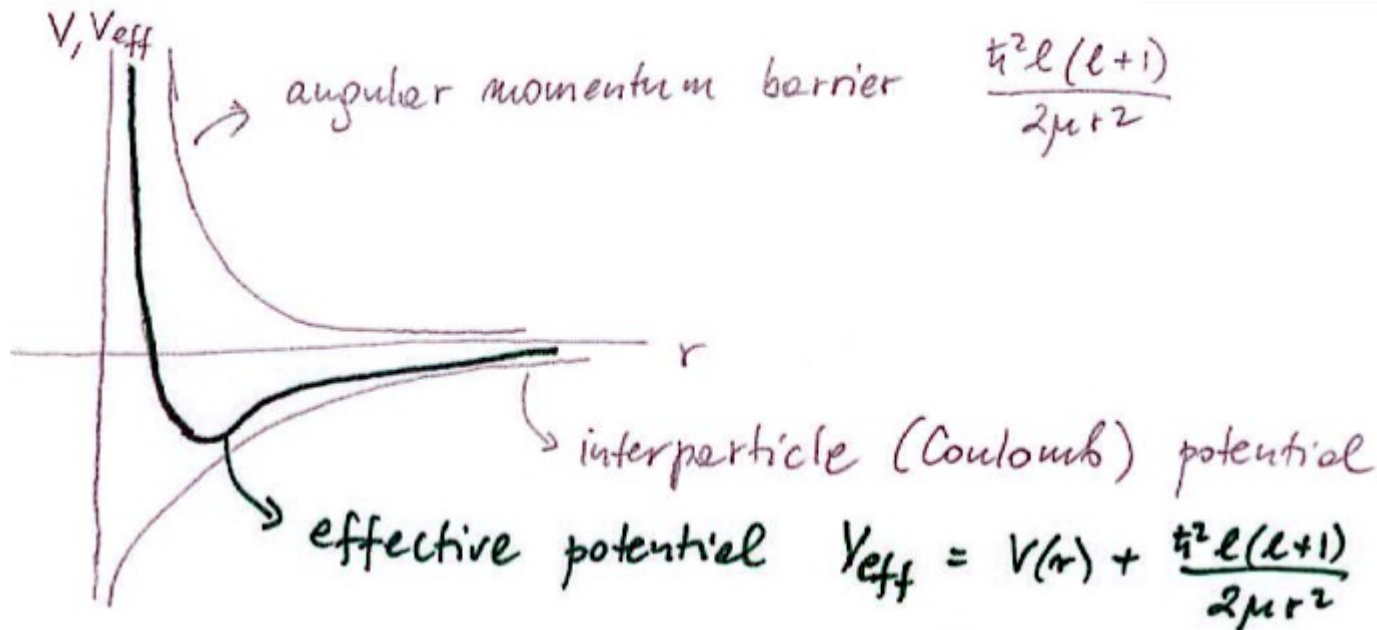 V, Veff
angular momentum barrier ħ²ℓ(ℓ+1)/2μr²
r
interparticle (Coulomb) potential
effective potential Veff = V(r) + ħ²ℓ(ℓ+1)/2μr²